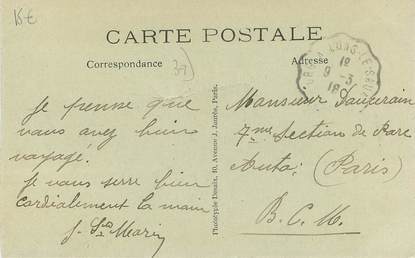 15€
CARTE POSTALE
Correspondance
37
Adresse
LONS-LE-SAU
18
9 -3
Je pense que
vous avez bien
voyagé.
Je vous serre bien
cordialement la main
J. Ste Marie
Phototypie Desaix, 10, Avenue J. Jaurès, Paris.
Monsieur
7me Section de Parc
Auto: (Paris)
B.C.M.